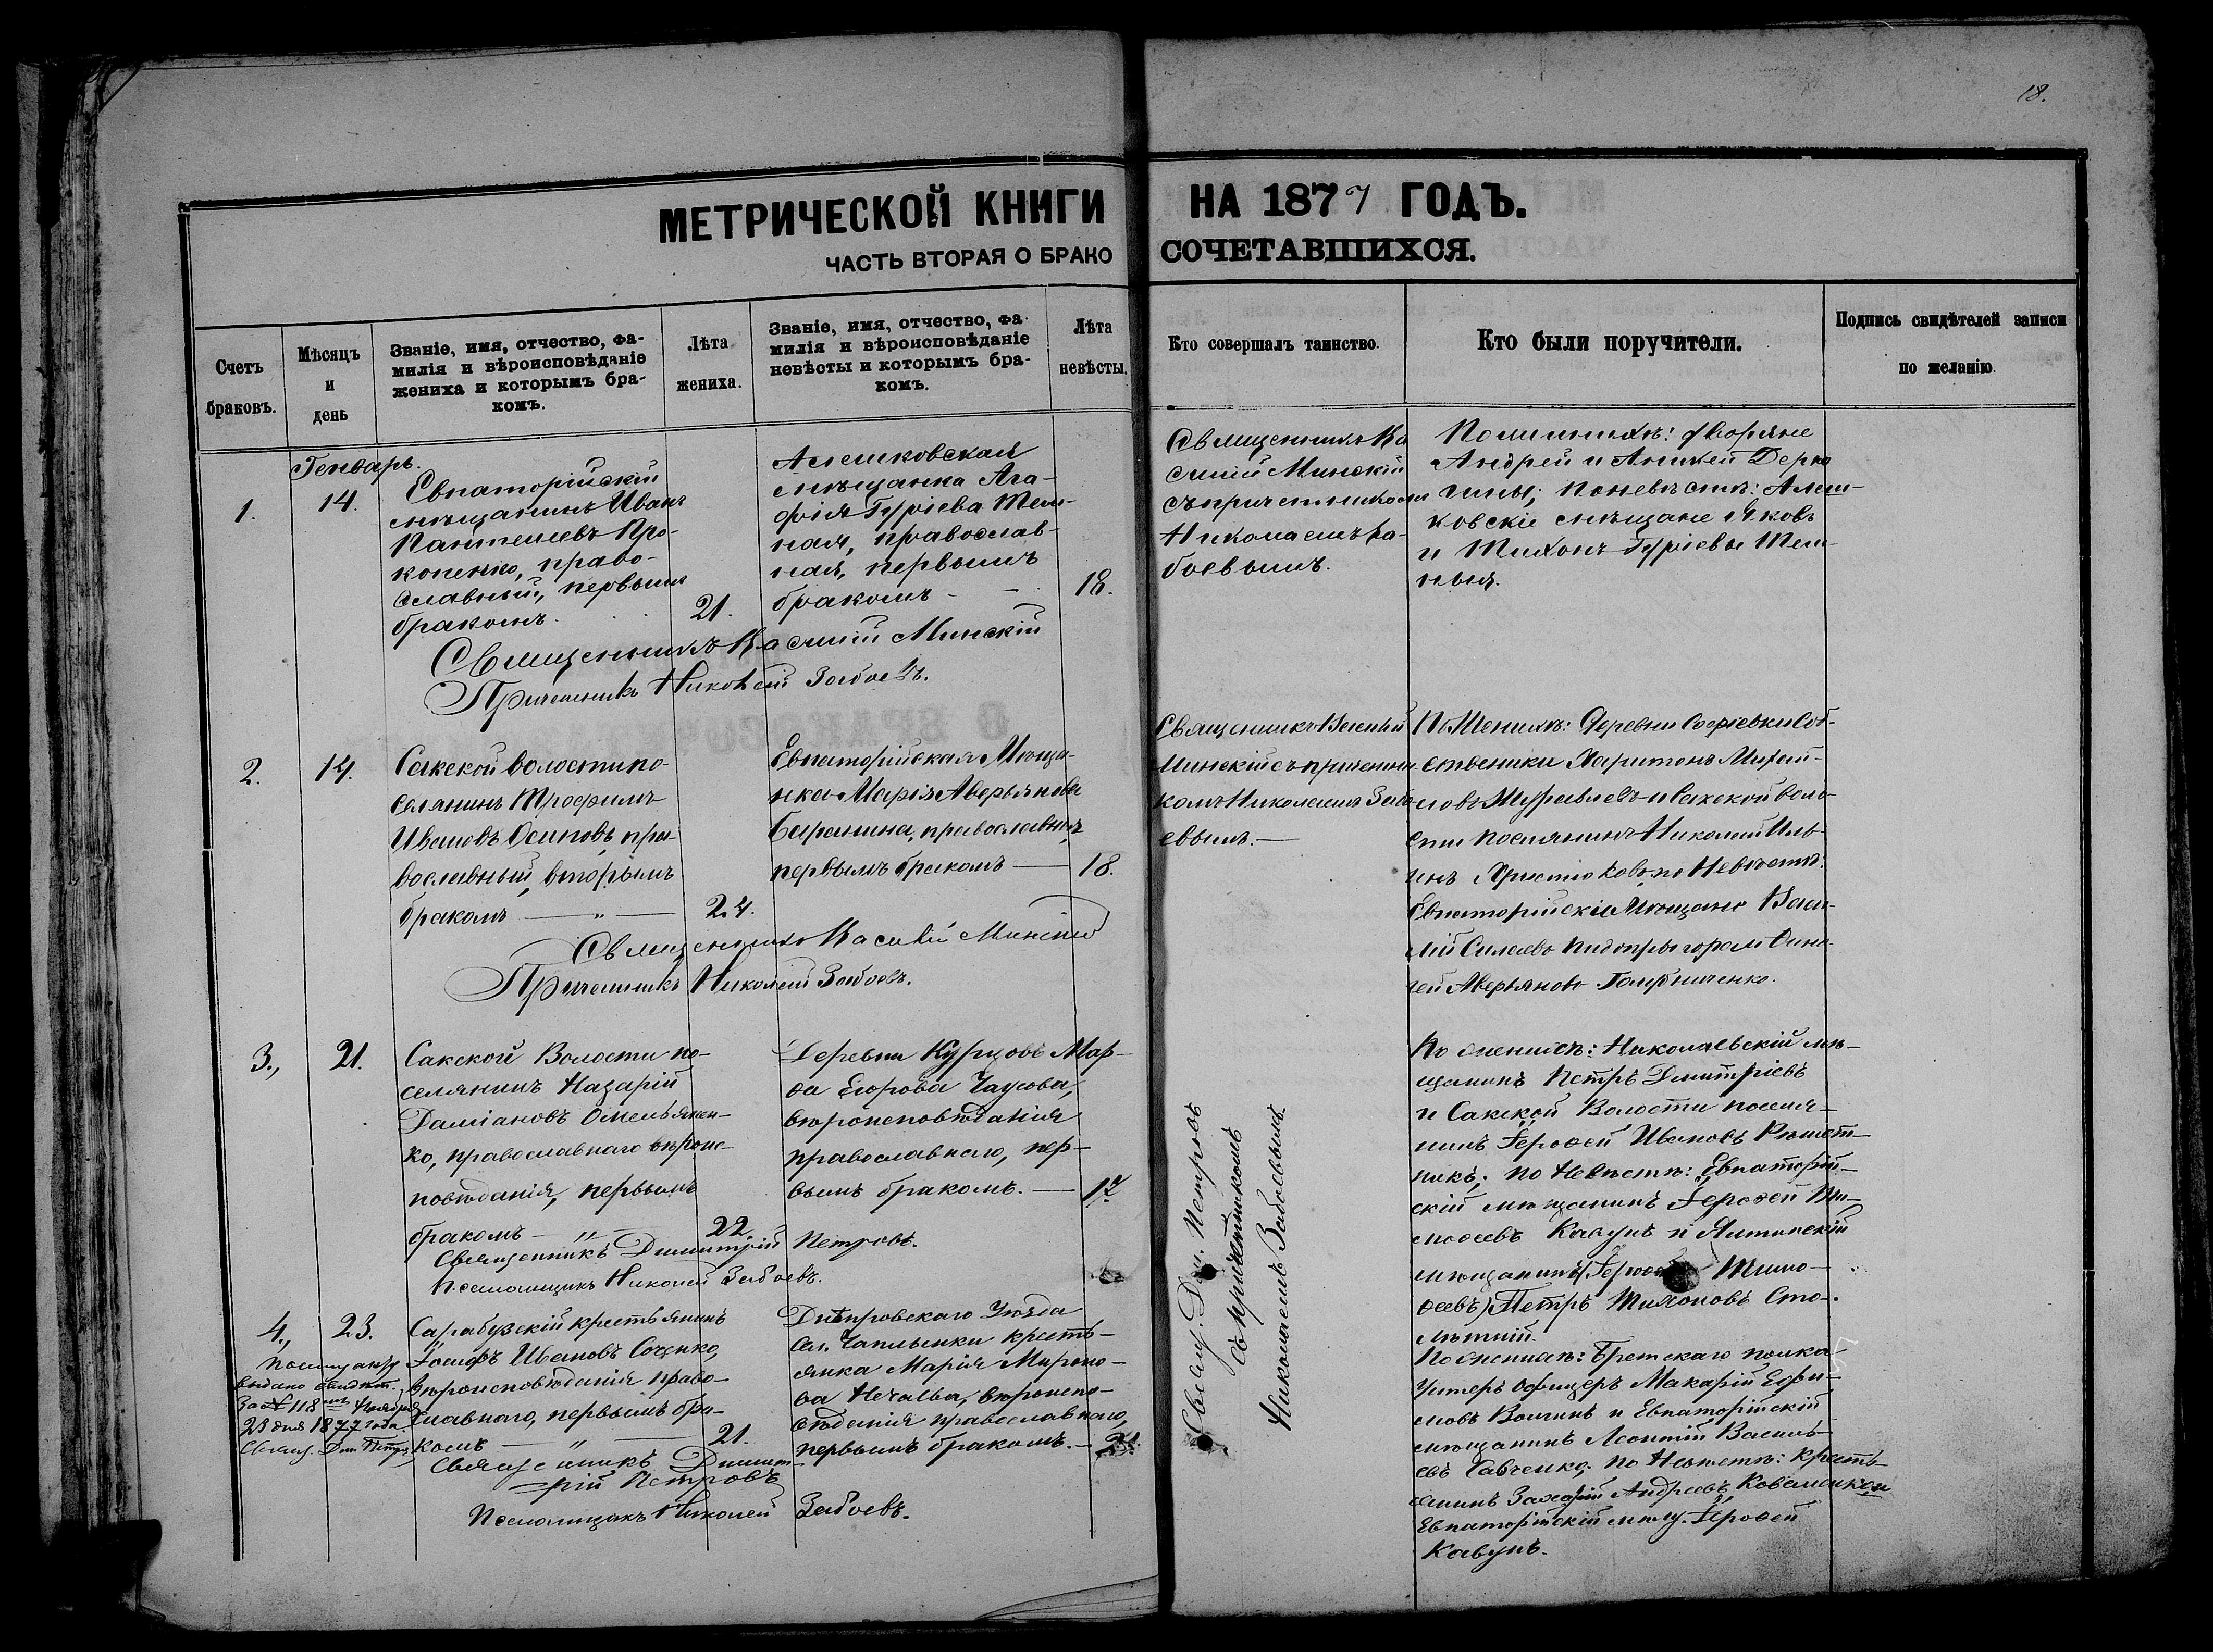 18.
МЕТРИЧЕСКОЙ КНИГИ НА 1877 ГОДЪ.
ЧАСТЬ ВТОРАЯ О БРАКО СОЧЕТАВШИХСЯ.
Счетъ
браковъ.
Мѣсяцъ
и
день
Званіе, имя, отчество, фа-
милія и вѣроисповѣданіе
жениха и которымъ бра-
комъ.
Лѣта
жениха.
Званіе, имя, отчество, фа-
милія и вѣроисповѣданіе
невѣсты и которымъ бра-
комъ.
Лѣта
невѣсты.
Кто совершалъ таинство.
Кто были поручители.
Подпись свидѣтелей записи
по желанію
Генварь.
1.
14.
Евпаторійскій
мѣщанинъ Иванъ
Пантелеевъ Про-
копенко, право-
славный, первымъ
бракомъ.
21.
Алешковская
мѣщанка Ага-
фія Гуріева Тем-
ная, православ-
ная, первымъ
бракомъ
18.
Священникъ Ва
силій Минскій
съ причетникомъ
Николаемъ За-
боевымъ.
По женихѣ: дворяне
Андрей и Аникей Дерко
чины; по невѣстѣ: Алеш-
ковскіе мѣщане Яковъ
и Тихонъ Гуріевы Тем-
ныя.
Священникъ Василій Минскій
Причетникъ Николай Забоевъ.
2.
14.
Сакской волости по-
селянинъ Трофимъ
Ивановъ Осиповъ, пра-
вославный, вторымъ
бракомъ — " —
24.
Евпаторійская Мѣща-
нка Марія Аверьянова
Баранина, православныя
первымъ бракомъ —
18.
Священникъ Василій
Минскій съ причетни
комъ Николаемъ Забо
евымъ. —
По Женихѣ: Деревни Софіевки Соб-
ственики Харитонъ Михай-
ловъ Журавлевъ и Сакской воло-
сти поселянинъ Николай Иль-
инъ Христоковъ, по Невѣстѣ:
Евпаторійскіе Мѣщане Васи-
лій Силаевъ Пидопрыгора и
Аверьяновъ
Священникъ Василій Минскій
Причетникъ Николай Забоевъ.
3.,
21.
Сакской Волости по-
селянинъ Назарій
Даміановъ Омельянен-
ко, православнаго вѣроис-
повѣданія, первымъ
бракомъ — " —
22.
Деревни Курцовъ Мар-
ѳа Егорова Чаусова,
вѣроисповѣданія
православнаго, пер-
вымъ бракомъ. —
17
Свящ. Дим. Петровъ
съ причетникомъ
Николаемъ Забоевымъ.
По женихѣ: Николаевскій мѣ-
щанинъ Петръ Димитріевъ
и Сакской Волости поселя-
нинъ Іероѳей Ивановъ Рѣшет-
никъ; по Невѣстѣ: Евпаторій-
скій мѣщанинъ Іероѳей Ти-
моѳеевъ Кавунъ и Ялтинскій
мѣщанинъ (Іероѳей Тимо-
ѳеевъ) Петръ Тихоновъ Сто-
лѣтній.
Священникъ Димитрій Петровъ.
Псаломщикъ Николай Забоевъ.
4.,
23.
Сарабузскій крестьянинъ
Іосифъ Ивановъ Соценко,
вѣроисповѣданія право-
славнаго, первымъ бра-
комъ — " —
21.
Днѣпровскаго Уѣзда
сел. Чаплынки кресть-
янка Марія Мироно-
ва Нечаева, вѣроиспо-
вѣданія православнаго,
первымъ бракомъ. —
21.
выдано свидѣт.
за № 118 Ноября
23 дня 1877 года.
Свящ. Дим. Петровъ
По женихѣ: Бретскаго полка
Унтеръ Офицеръ Макарій Ефи-
мовъ Волчинъ и Евпаторійскій
мѣщанинъ Леонтій Василь-
евъ Савченко; по Невѣстѣ: кресть-
янинъ Захарій Андреевъ Коваленко и
Евпаторійскій мѣщ. Іероѳей
Кавунъ.
Священникъ Димит-
рій Петровъ
Псаломщикъ Николай Забоевъ.